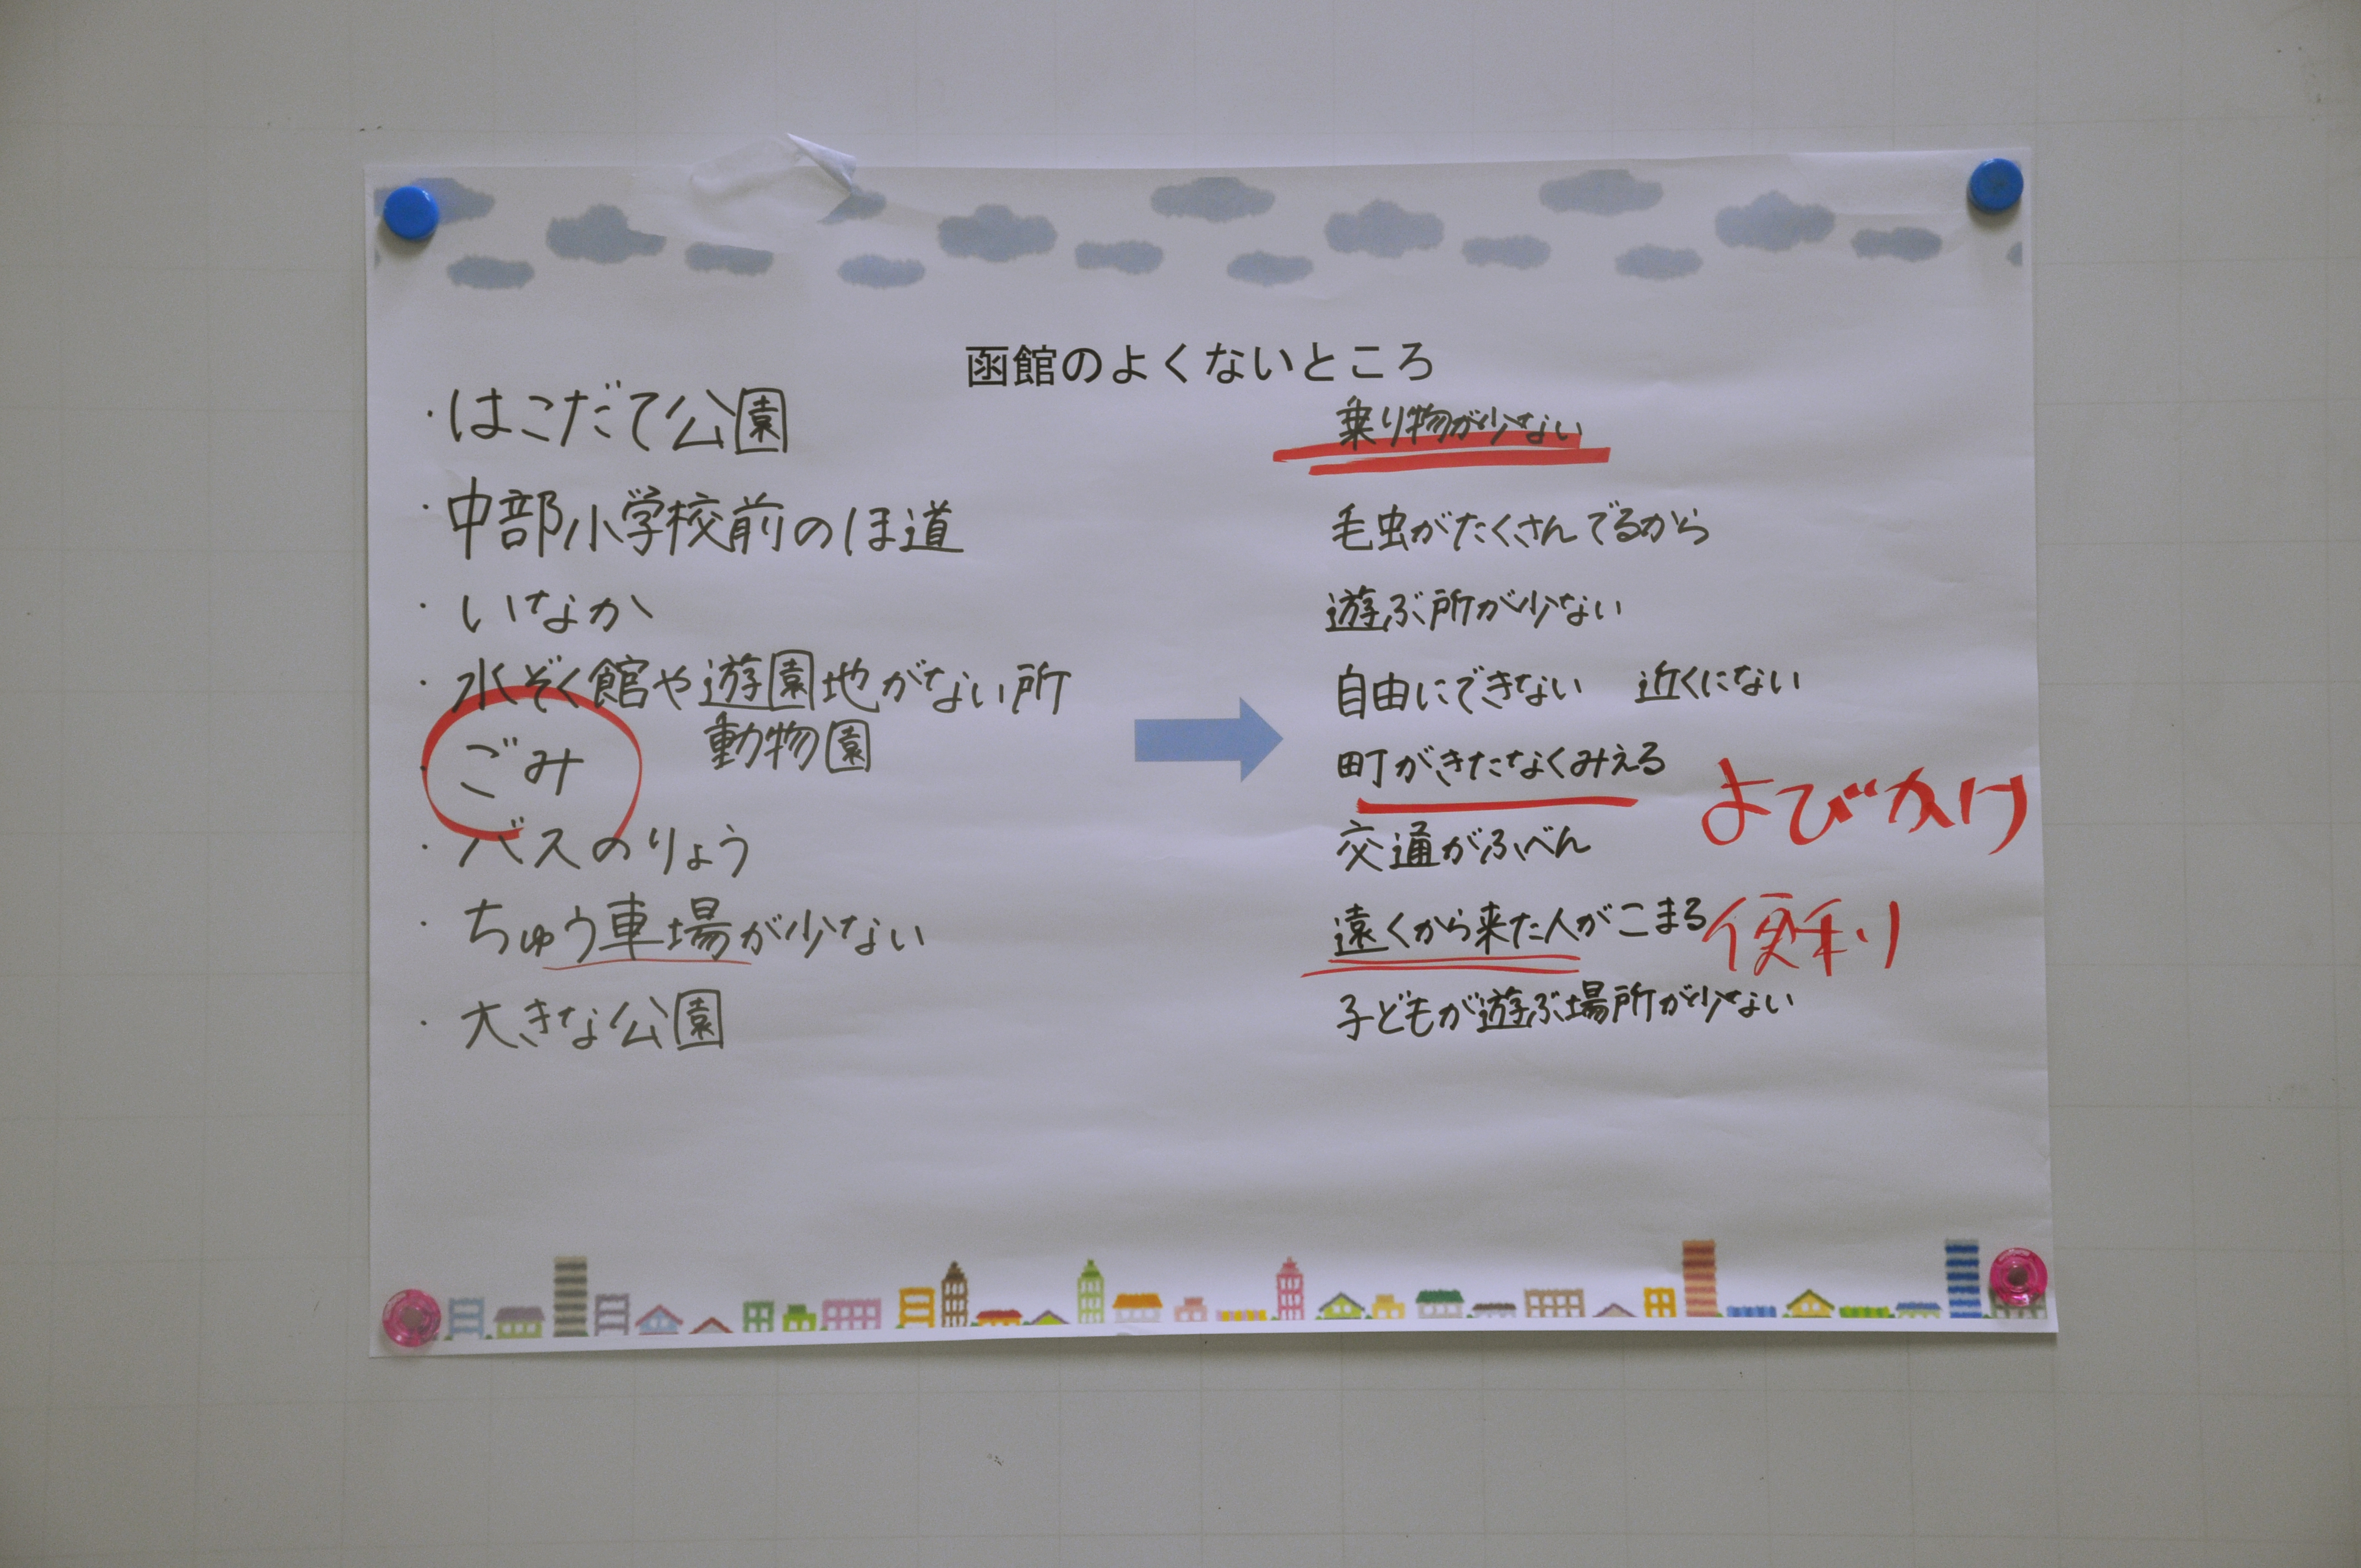 函館のよくないところ
・はこだて公園
・中部小学校前のほ道
・いなか
・水ぞく館や遊園地がない所
動物園
・ごみ
・バスのりょう
・ちゅう車場が少ない
・大きな公園
乗り物が少ない
毛虫がたくさんでるから
遊ぶ所が少ない
自由にできない 近くにない
町がきたなくみえる
よびかけ
交通がふべん
遠くから来た人がこまる 便利
子どもが遊ぶ場所が少ない